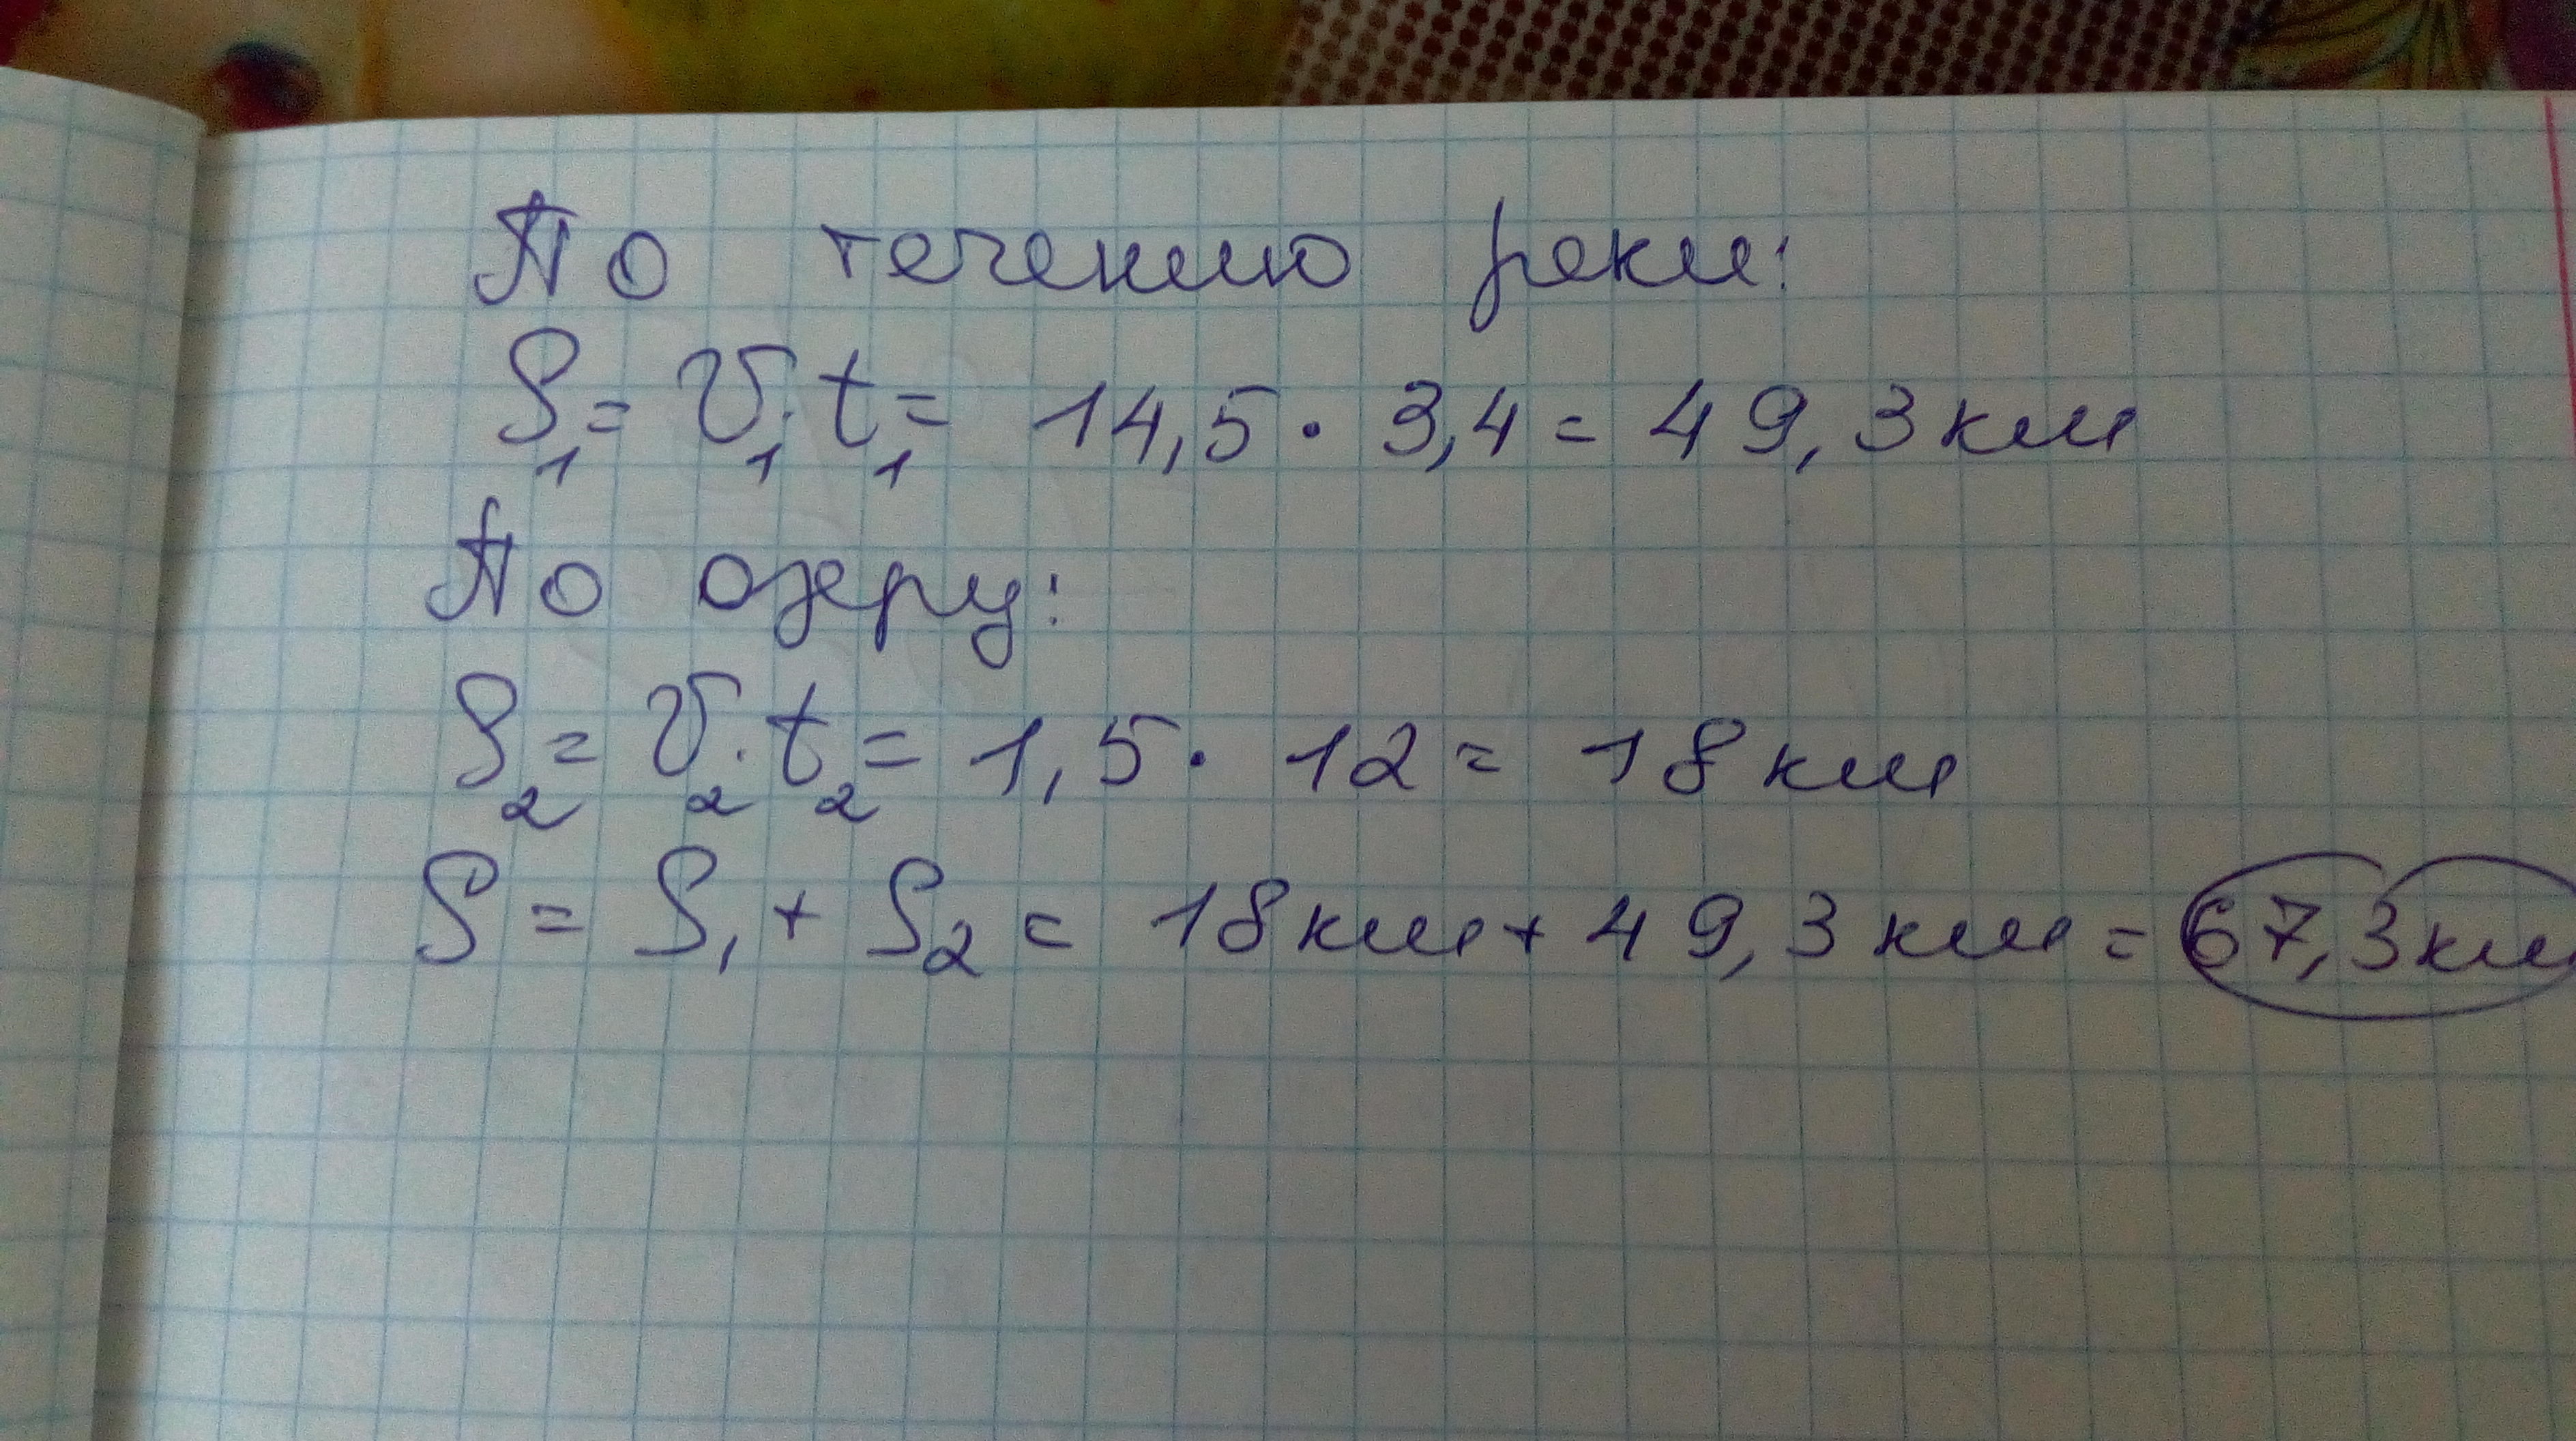 По течению реки:
S₁ = V₁ · t₁ = 14,5 · 3,4 = 49,3 км
По озеру:
S₂ = V₂ · t₂ = 1,5 · 12 = 18 км
S = S₁ + S₂ = 18 км + 49,3 км = 67,3 км